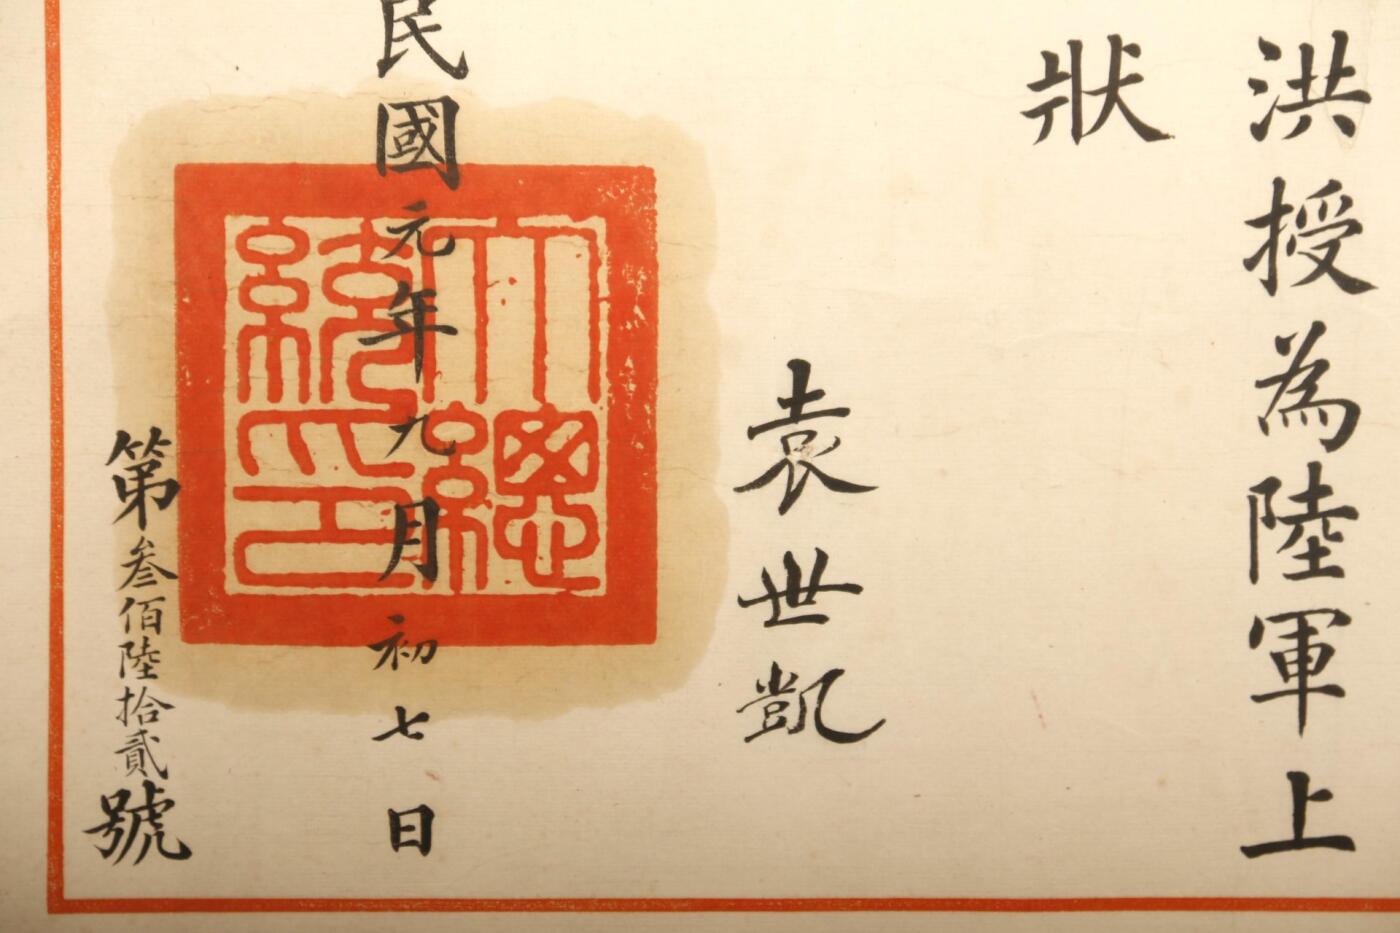 洪授為陸軍上
狀
袁世凱
民國元年九月初七日
大總統印
第叁佰陸拾貳號